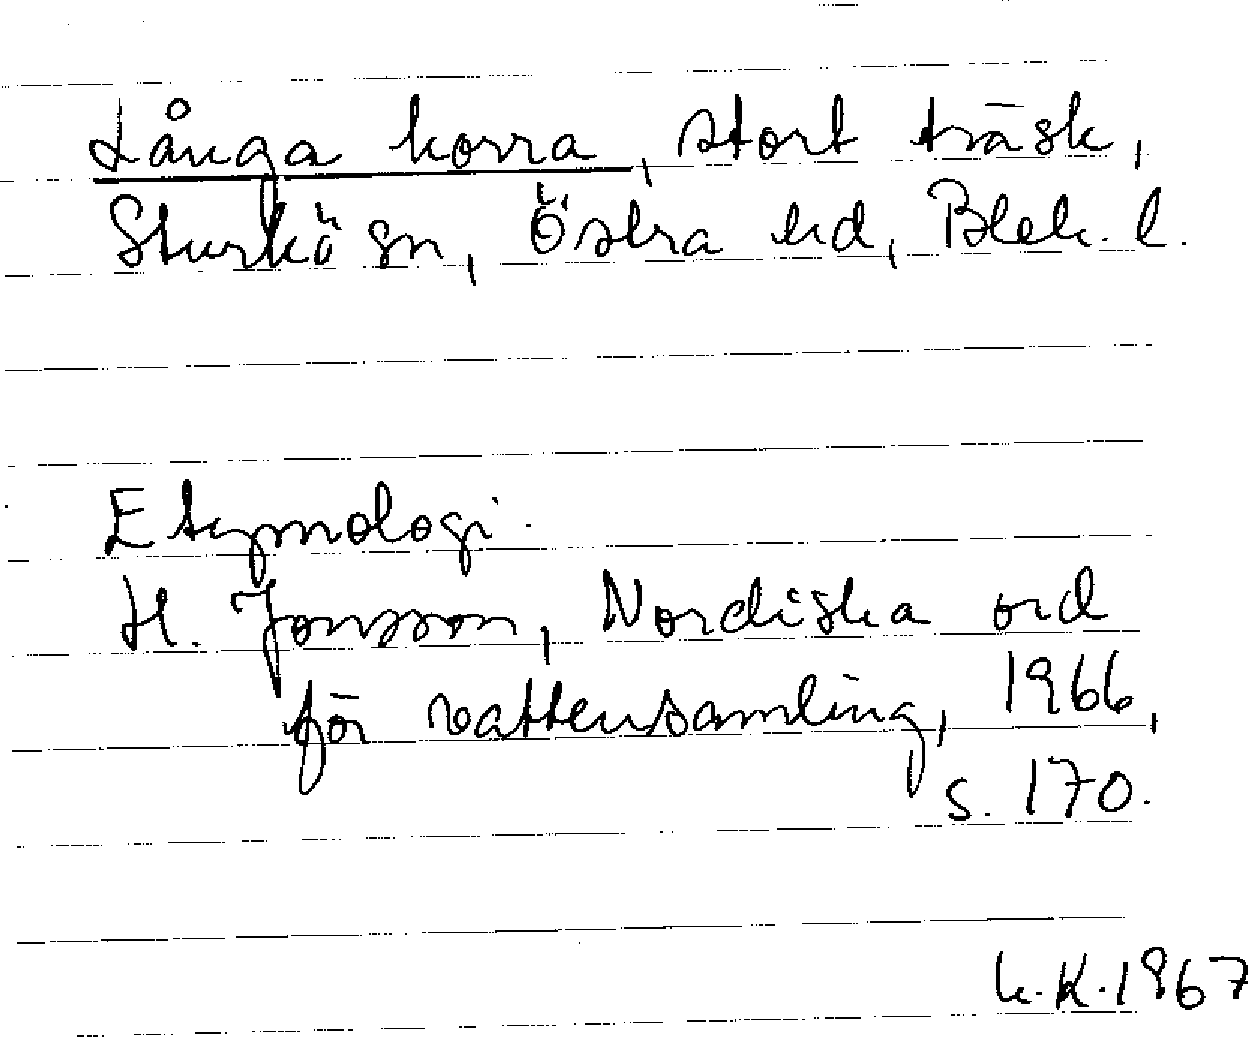 Långa korra, stort träsk,
Sturkö sn, Östra hd, Blek. l.
Etymologi.
H. Jonsson, Nordiska ord
för vattensamling, 1966,
s. 170.
K.1967